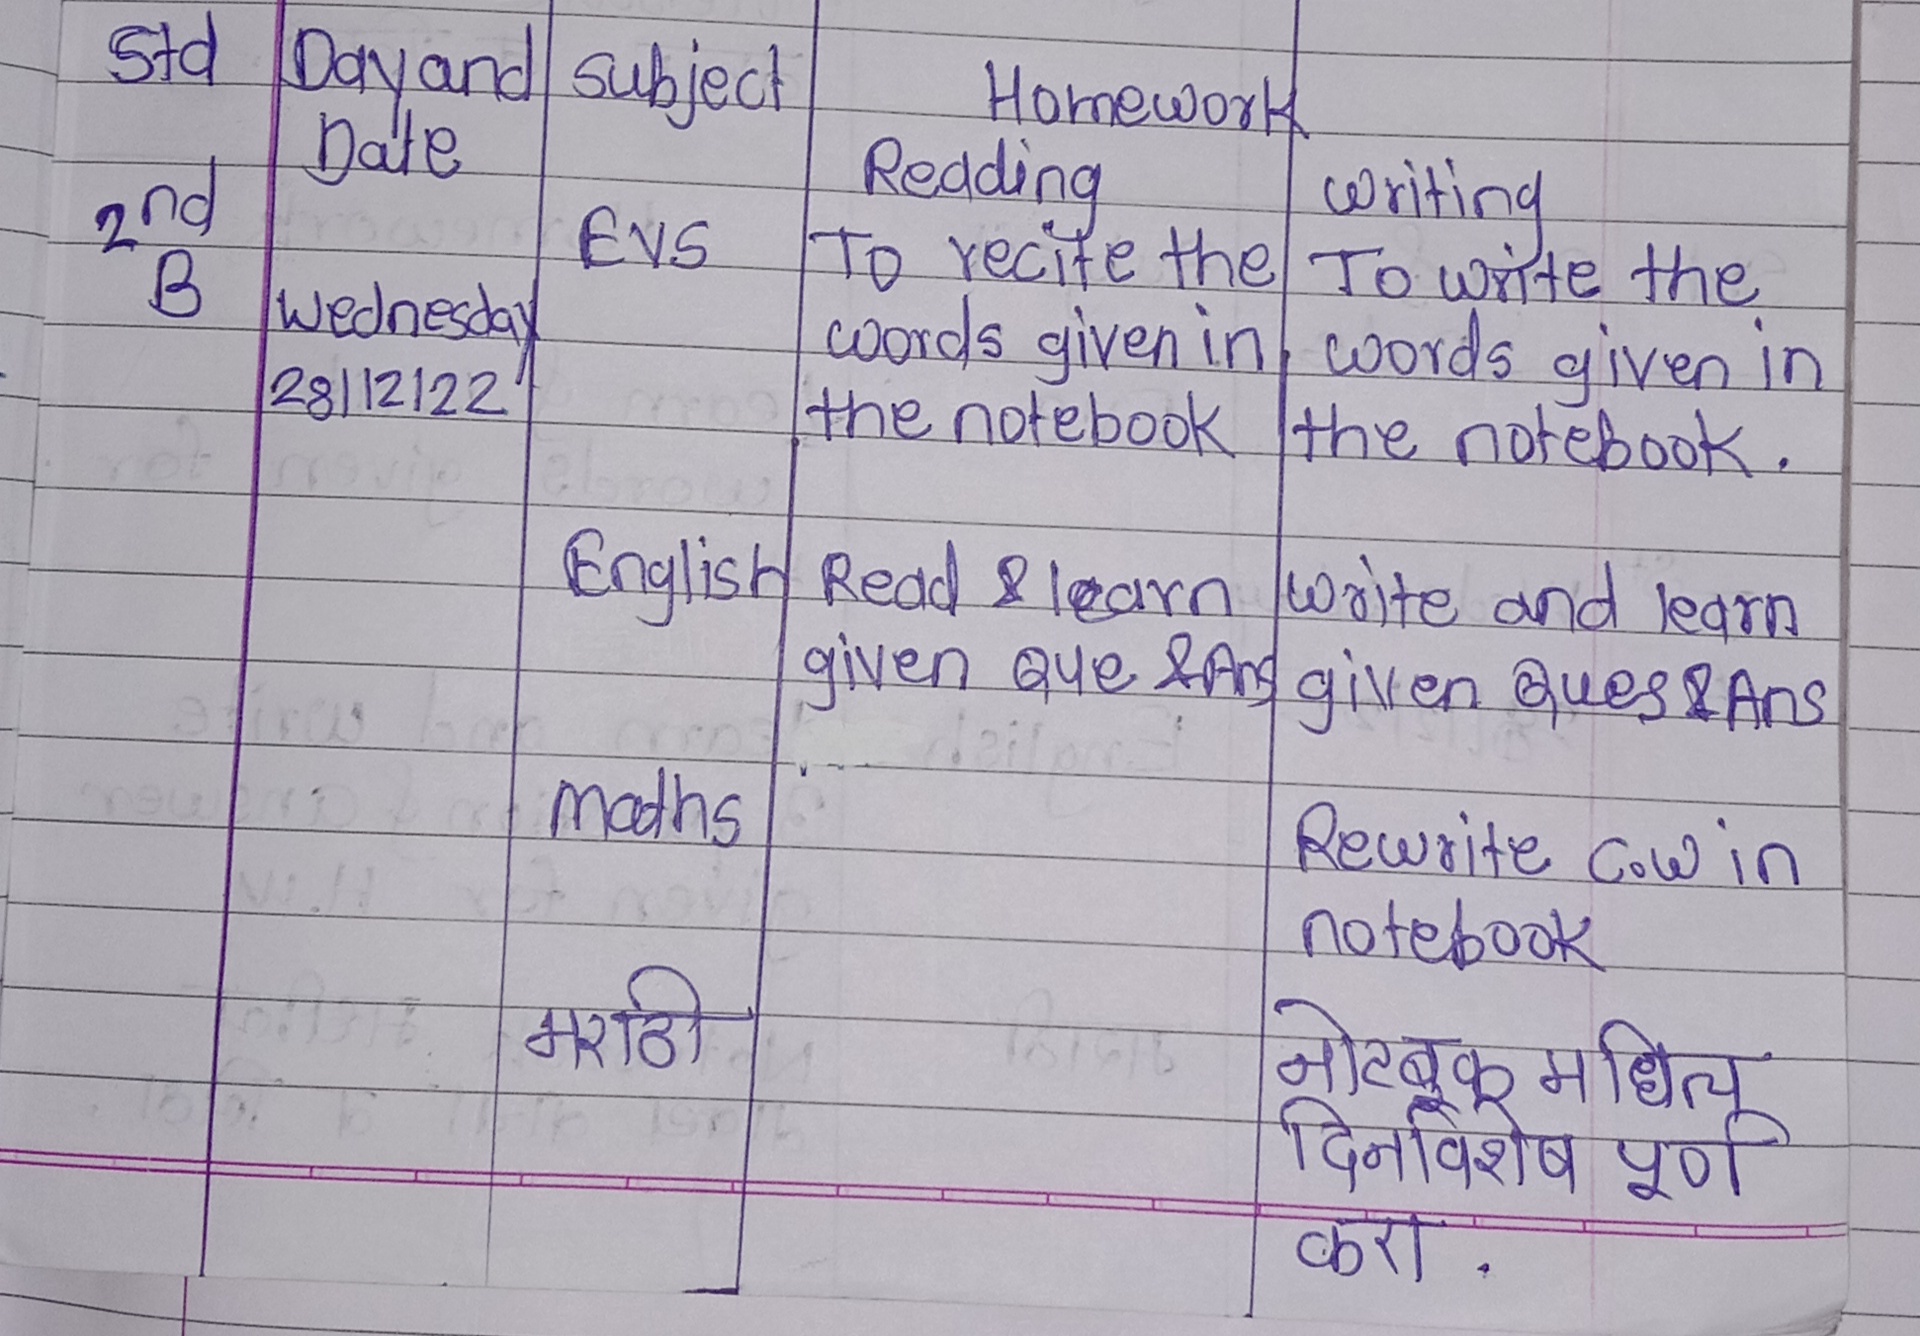 Std Day and Subject Homework
Date Reading Writing
2nd EVS To recite the To write the
B Wednesday words given in words given in
28/12/22 the notebook the notebook.
English Read & learn Write and learn
given Que & Ans given Ques & Ans
maths Rewrite C.W in
notebook
मराठी नोटबुक मधिल
दिनविशेष पूर्ण
करा.